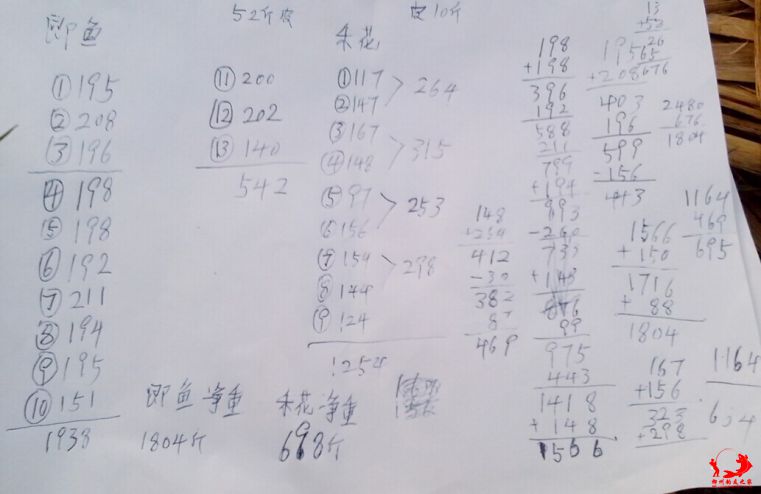 即鱼
① 195
② 208
③ 196
④ 198
⑤ 198
⑥ 192
⑦ 211
⑧ 194
⑨ 195
⑩ 151
1938
52斤皮
⑪ 200
⑫ 202
⑬ 140
542
即鱼净重
1804斤
禾花
皮10斤
① 117
② 147
264
③ 167
④ 148
315
⑤ 97
⑥ 156
253
⑦ 154
⑧ 144
298
⑨ 124
1254
禾花净重
698斤
148
+264
412
-30
382
87
469
198
+198
396
192
588
211
799
+194
993
-260
733
+143
876
99
975
443
1418
+148
1566
13
+52
26
65
676
195
+208
403
196
599
-156
443
2480
676
1804
1164
469
695
1566
+150
1716
+88
1804
167
+156
323
+298
1164
634
柳州钓友之家